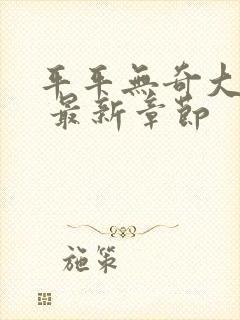 平平無奇大
最新章節
施策